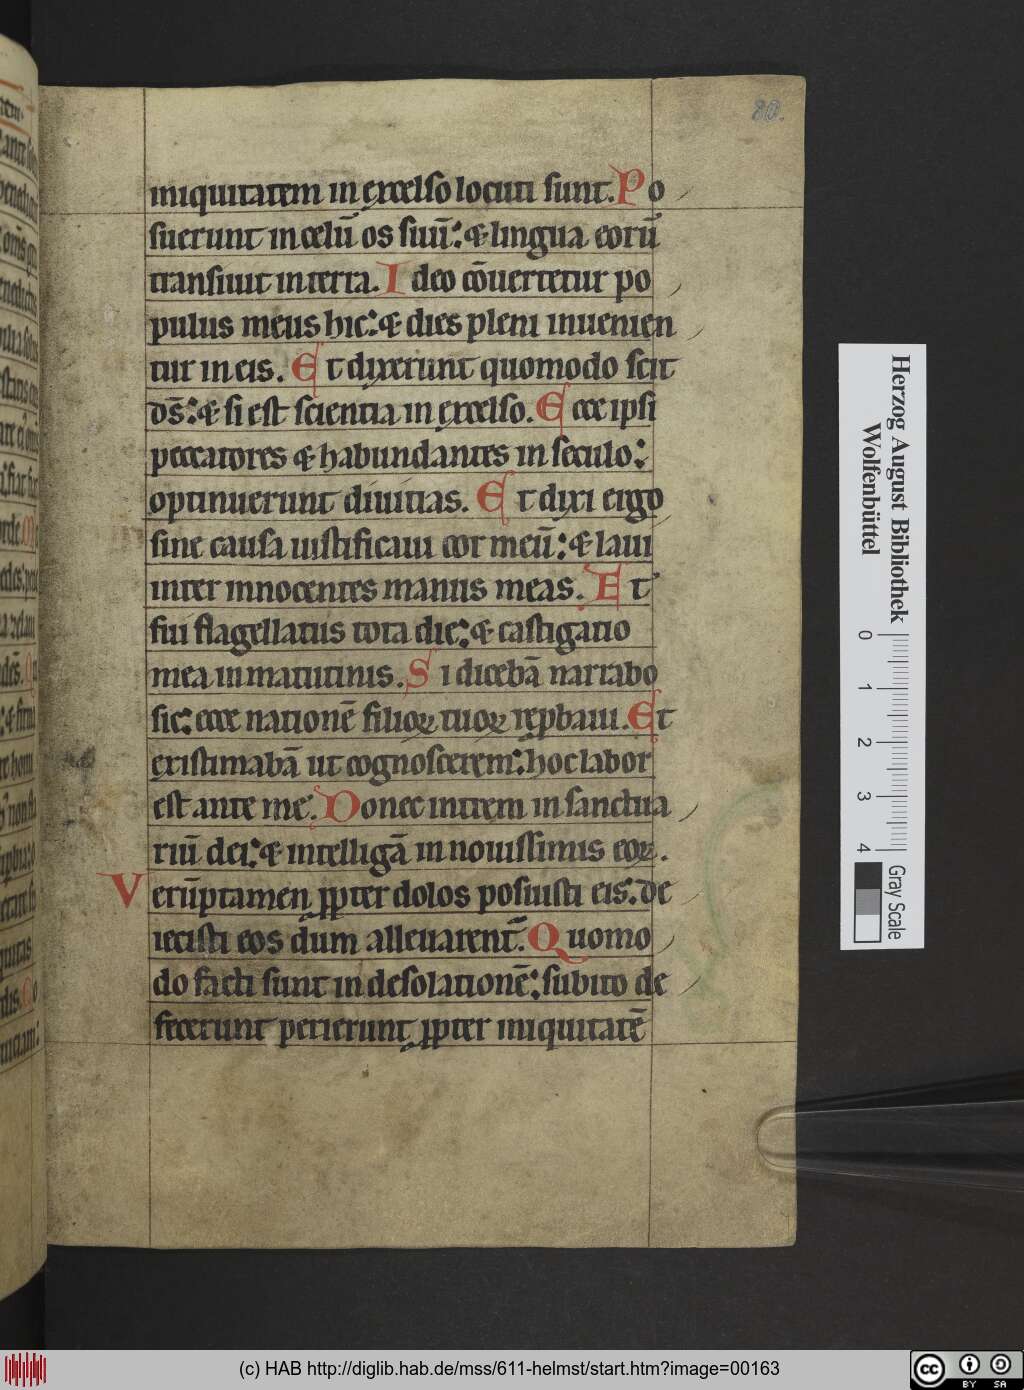 80.
iniquitatem in excelso locuti sunt. Po
suerunt in celū os suū: & lingua eorū
transiuit in terra. Ideo cōuertetur po
pulus meus hic: & dies pleni inuenien
tur in eis. Et dixerunt quomodo scit
ds̄: & si est scientia in excelso. Ecce ipsi
peccatores & habundantes in seculo:
optinuerunt diuitias. Et dixi ergo
sine causa iustificaui cor meū: & laui
inter innocentes manus meas. Et
fui flagellatus tota die: & castigatio
mea in matutinis. Si dicebā narrabo
sic: ecce nationē filioꝝ tuoꝝ rep̱baui. Et
existimabā ut cognoscerem: hoc labor
est ante me. Donec intrem in sanctua
riū dei: & intelligā in nouissimis eoꝝ.
Verūptamen ꝓpter dolos posuisti eis: de
iecisti eos dum alleuarent᷑. Quomo
do facti sunt in desolationē: subito de
fecerunt perierunt ꝓpter iniquitatē
Herzog August Bibliothek
Wolfenbüttel
0 1 2 3 4
Gray Scale
(c) HAB http://diglib.hab.de/mss/611-helmst/start.htm?image=00163
cc BY SA